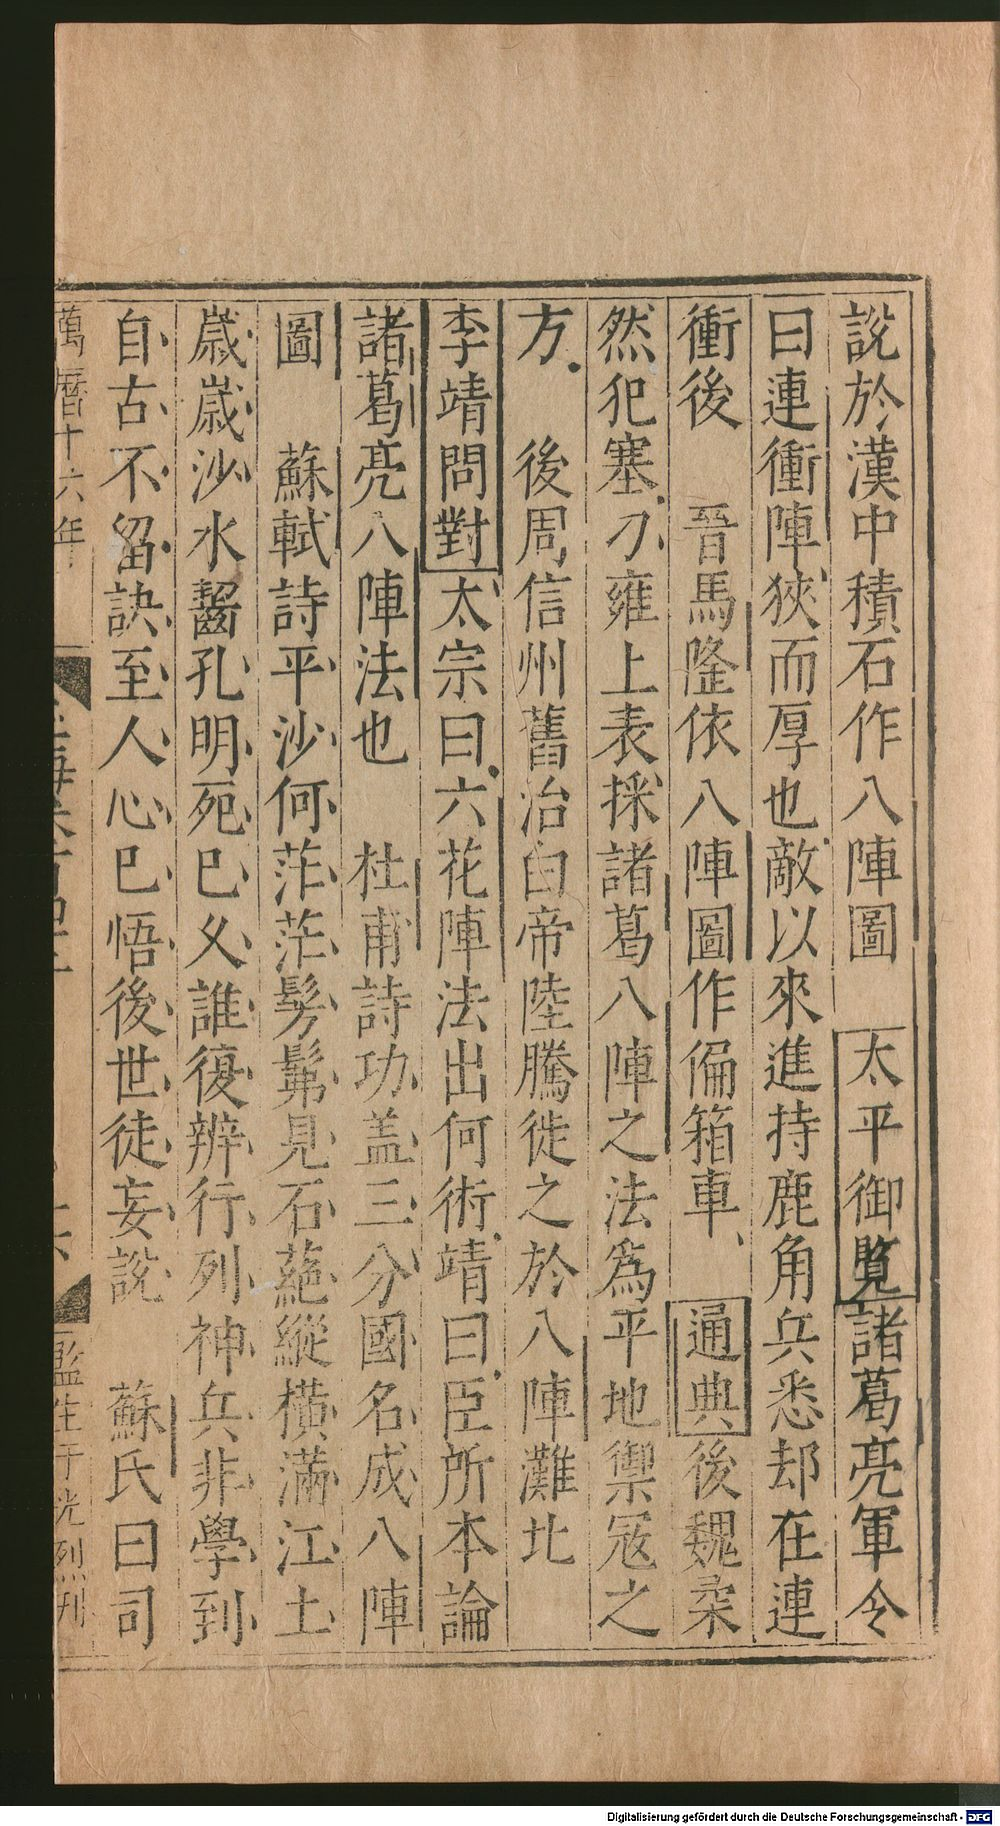 說於漢中積石作八陣圖　太平御覧諸葛亮軍令
曰連衝陣狹而厚也敵以來進持鹿角兵悉却在連
衝後　晉馬隆依八陣圖作偏箱車　通典後魏柔
然犯塞刁雍上表採諸葛八陣之法為平地禦冦之
方　後周信州舊治白帝陸騰徙之於八陣灘北
李靖問對太宗曰六花陣法出何術靖曰臣所本諸
諸葛亮八陣法也　杜甫詩功盖三分國名成八陣
圖　蘇軾詩平沙何茫茫髣髴見石蕝縱橫滿江土
歲歲沙水齧孔明死已久誰復辨行列神兵非學到
自古不留訣至人心已悟後世徒妄說　蘇氏曰司
萬曆十六年
監生于光烈刊
Digitalisierung gefördert durch die Deutsche Forschungsgemeinschaft - DFG